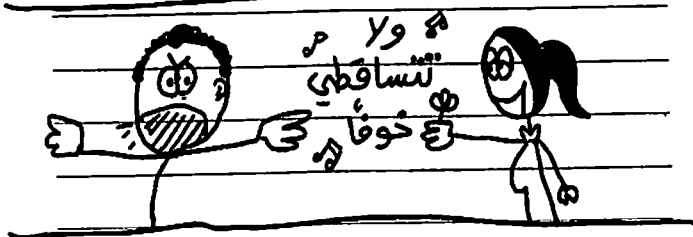 ولا
تتساقطي
خوفاً